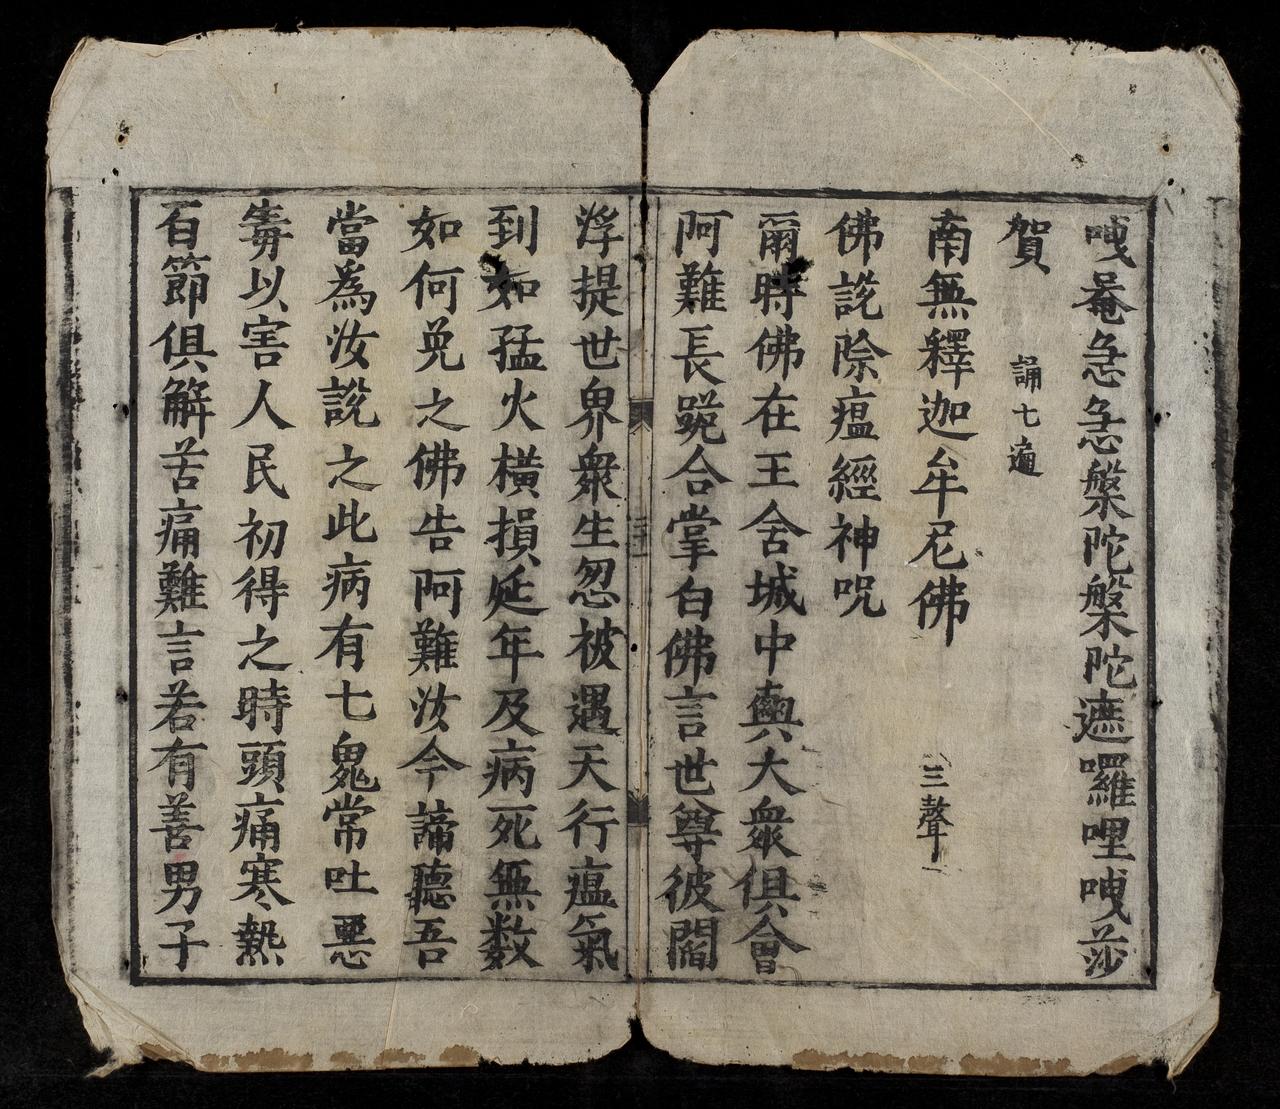 㖿菴急急槃陀槃陀遮囉哩㖿莎
賀 誦七遍
南無釋迦牟尼佛 三聲
佛說除瘟經神呪
爾時佛在王舍城中與大衆俱會
阿難長跪合掌白佛言世尊彼閻
浮提世界衆生忽被遇天行瘟氣
到如猛火橫損延年及病死無数
如何免之佛告阿難汝今諦聽吾
當為汝說之此病有七鬼常吐惡
毒以害人民初得之時頭痛寒熱
百節俱解苦痛難言若有善男子